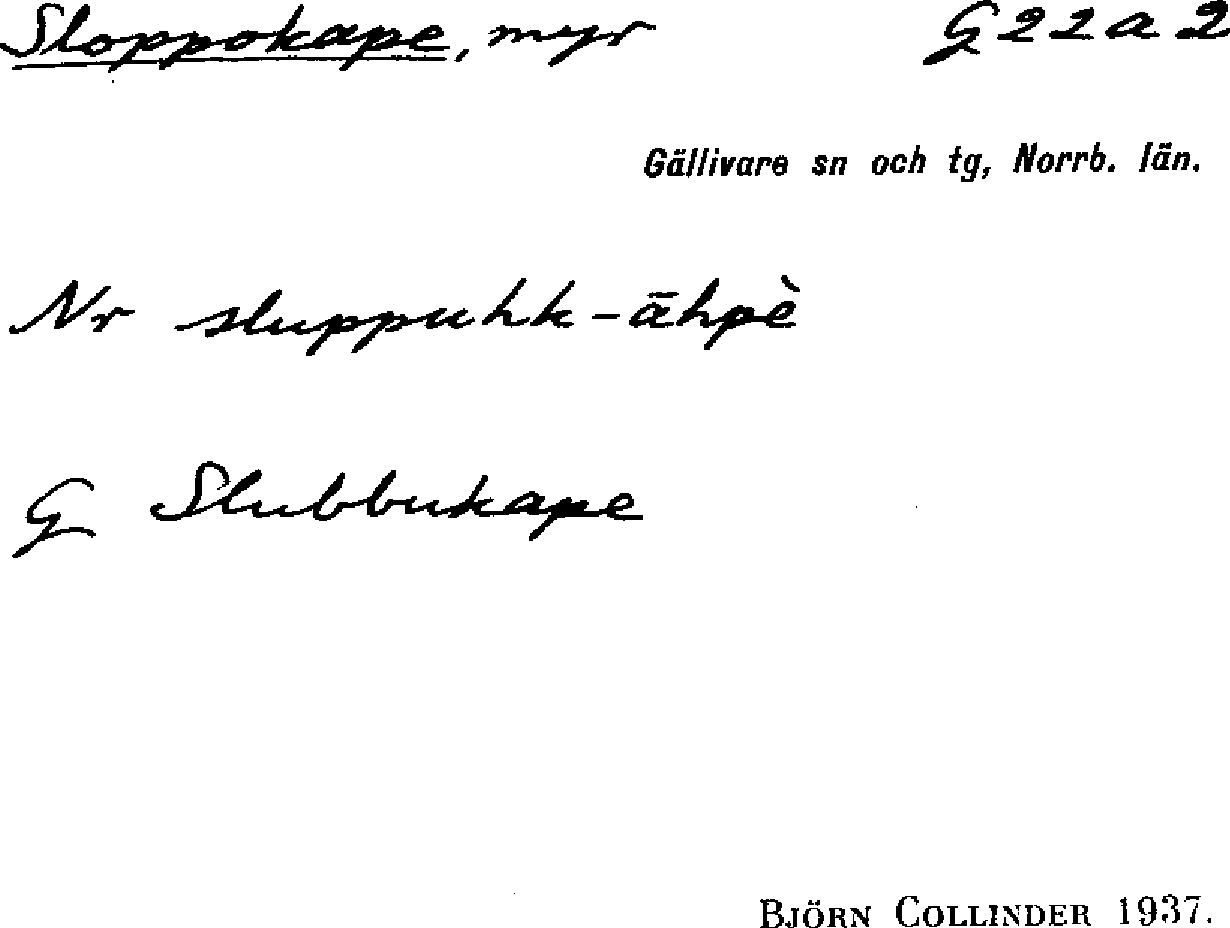 Sloppokape, myr G22a2
Gällivare sn och tg, Norrb. län.
Nr sluppuhk-āhpè
G Slubbukape
BJÖRN COLLINDER 1937.